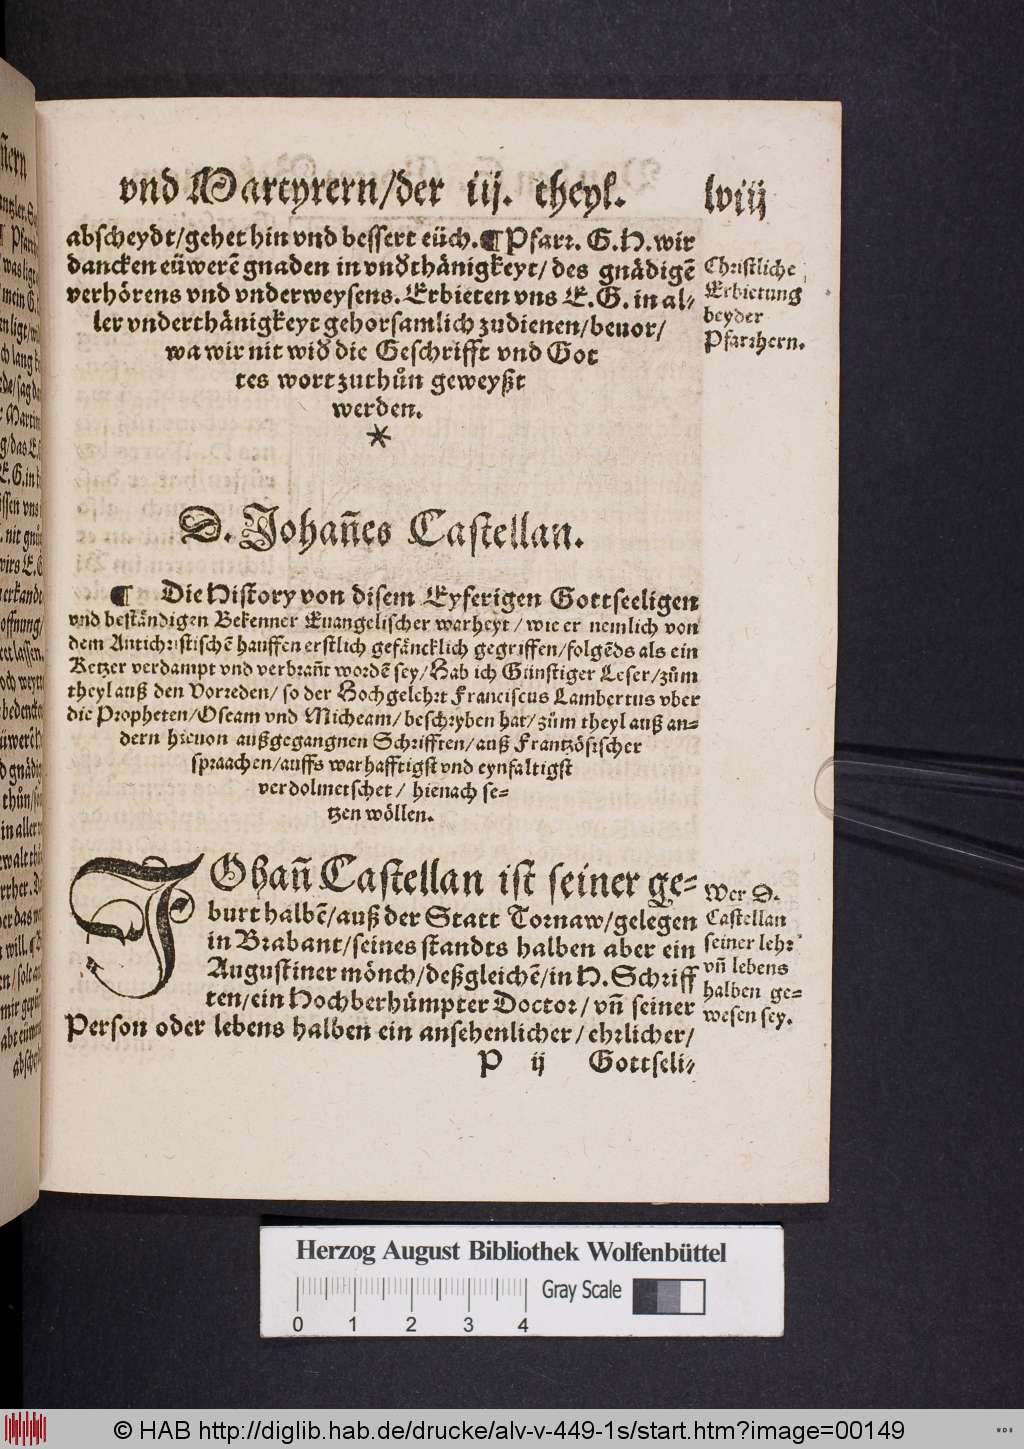 vnd Martyrern/der iij. theyl. lviij
abscheydt/gehet hin vnd bessert eüch.¶Pfarr. G.H. wir
dancken eüwerẽ gnaden in vnd̕thänigkeyt/ des gnädigẽ
verhörens vnd vnderweysens. Erbieten vns E.G. in al-
ler vnderthänigkeyt gehorsamlich zudienen/beuor/
wa wir nit wid̕ die Geschrifft vnd Got
tes wort zuthůn geweyßt
werden.
*
Christliche
Erbietung
beyder
Pfarrhern.
D. Johañes Castellan.
¶ Die History von disem Eyferigen Gottseeligen
vnd beständigen Bekenner Euangelischer warheyt / wie er nemlich von
dem Antichristischẽ hauffen erstlich gefäncklich gegriffen/folgẽds als ein
Ketzer verdampt vnd verbrañt wordẽ sey/Hab ich Günstiger Leser/zům
theyl auß den Vorreden/ so der Hochgelehrt Franciscus Lambertus vber
die Propheten/Oseam vnd Micheam/beschryben hat/zům theyl auß an-
dern hieuon außgegangnen Schrifften/auß Frantzösischer
spraachen/auffs warhafftigst vnd eynfaltigst
verdolmetschet / hienach se-
tzen wöllen.
JOhañ Castellan ist seiner ge-
burt halbẽ/auß der Statt Tornaw/gelegen
in Brabant/seines standts halben aber ein
Augustiner mönch/deßgleichẽ/in H. Schriff
ten/ein Hochberhümpter Doctor/ vñ seiner
Person oder lebens halben ein ansehenlicher/ehrlicher/
Wer D.
Castellan
seiner lehr
vñ lebens
halben ge-
wesen sey.
P ij Gottseli-
Herzog August Bibliothek Wolfenbüttel
Gray Scale
0 1 2 3 4
© HAB http://diglib.hab.de/drucke/alv-v-449-1s/start.htm?image=00149